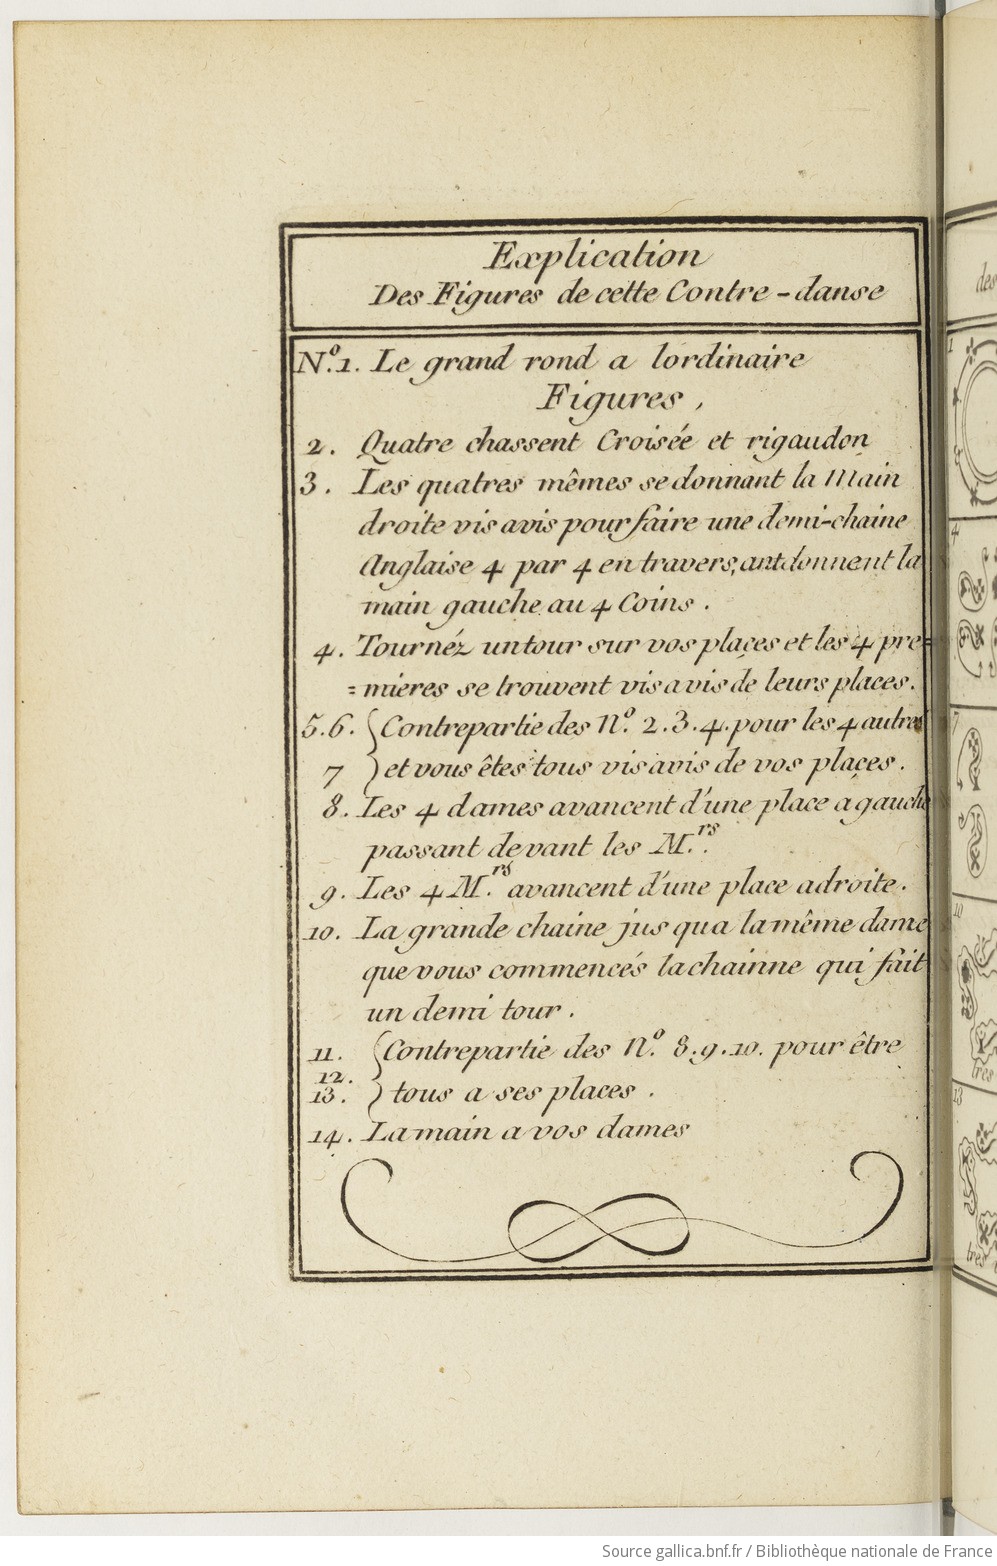 Explication
Des Figures de cette Contre-danse
N.º 1. Le grand rond a lordinaire
Figures,
2. Quatre chassent Croisée et rigaudon
3. Les quatres mêmes se donnant la Main
droite vis avis pour faire une demi-chaine
Anglaise 4 par 4 en travers, donnent la
main gauche au 4 Coins.
4. Tournéz un tour sur vos places et les 4 pre=
=mieres se trouvent vis a vis de leurs places.
5.6. { Contrepartie des N.º 2.3.4. pour les 4 autres
7 } et vous êtes tous vis avis de vos places.
8. Les 4 dames avancent d'une place a gauche
passant devant les M.rs.
9. Les 4 M.rs avancent d'une place adroite.
10. La grande chaine jus qu a la même dame
que vous commencés la chainne qui fait
un demi tour.
11. { Contrepartie des N.º 8.9.10. pour être
12.
13. } tous a ses places.
14. La main a vos dames
des
1
4
7
10
tres
13
tres
Source gallica.bnf.fr / Bibliothèque nationale de France